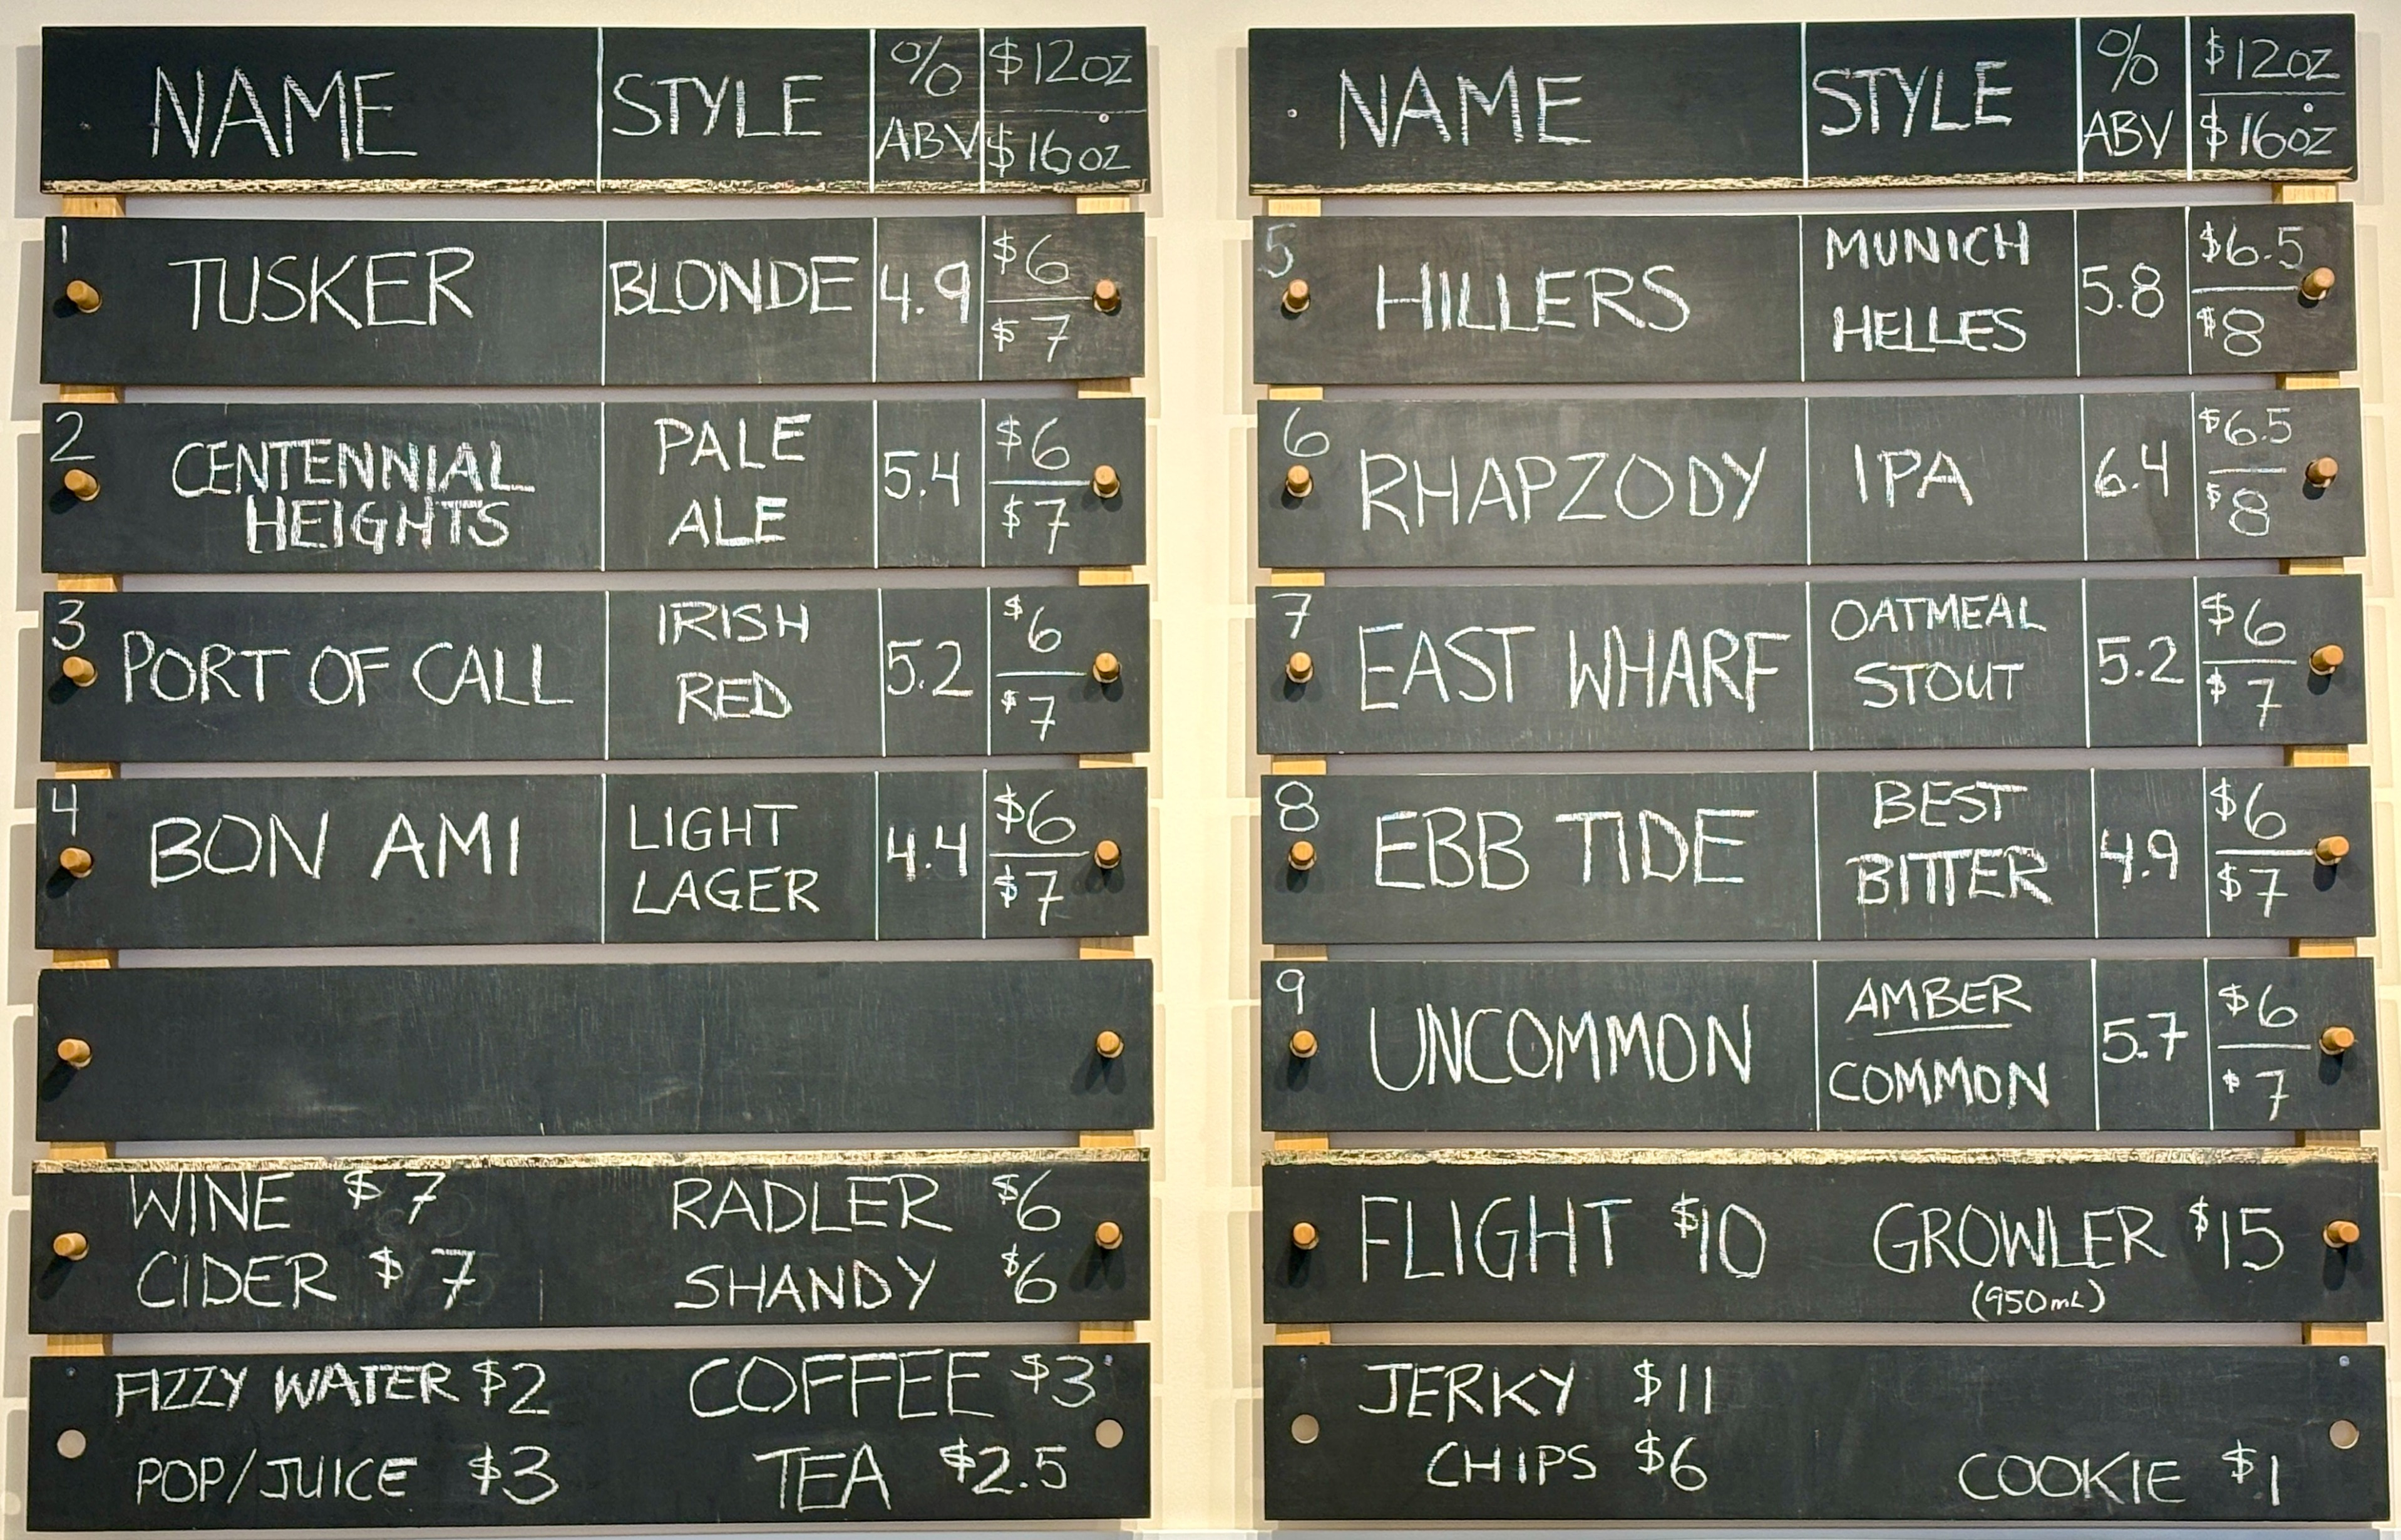 NAME STYLE % ABV $12oz $16oz
1 TUSKER BLONDE 4.9 $6 $7
2 CENTENNIAL HEIGHTS PALE ALE 5.4 $6 $7
3 PORT OF CALL IRISH RED 5.2 $6 $7
4 BON AMI LIGHT LAGER 4.4 $6 $7
WINE $7 RADLER $6
CIDER $7 SHANDY $6
FIZZY WATER $2 COFFEE $3
POP/JUICE $3 TEA $2.5
NAME STYLE % ABV $12oz $16oz
5 HILLERS MUNICH HELLES 5.8 $6.5 $8
6 RHAPZODY IPA 6.4 $6.5 $8
7 EAST WHARF OATMEAL STOUT 5.2 $6 $7
8 EBB TIDE BEST BITTER 4.9 $6 $7
9 UNCOMMON AMBER COMMON 5.7 $6 $7
FLIGHT $10 GROWLER $15
(950mL)
JERKY $11
CHIPS $6 COOKIE $1